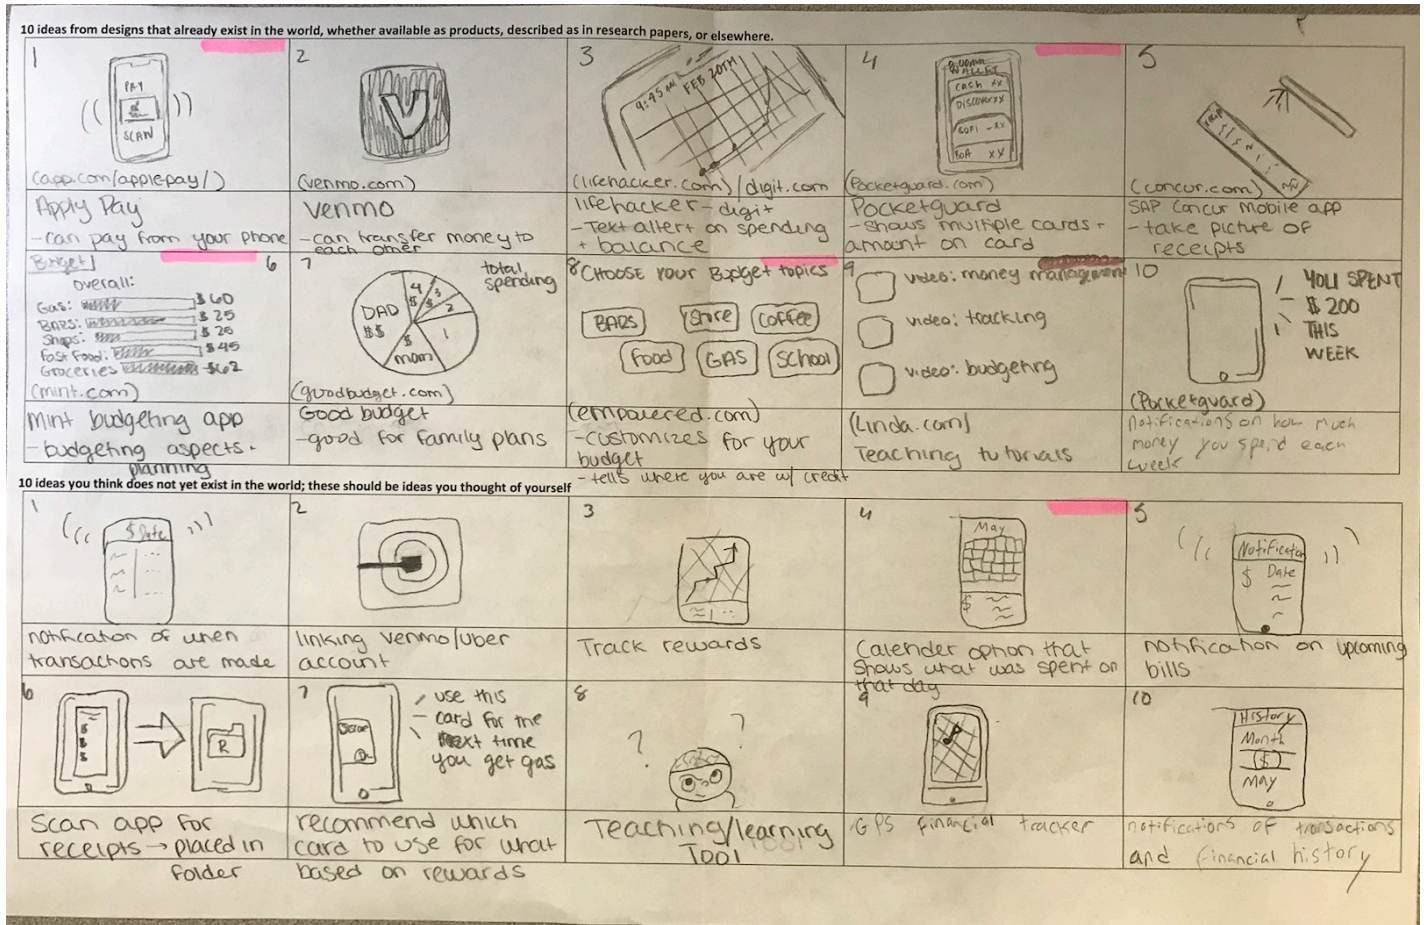 10 ideas from designs that already exist in the world, whether available as products, described as in research papers, or elsewhere.
1
PAY
SCAN
(app.com/applepay/)
Apply Pay
- can pay from your phone
2
V
(venmo.com)
venmo
- can transfer money to
each other
3
9:45 AM FEB 20TH
(lifehacker.com)/digit.com
lifehacker - digit
- Text altert on spending
+ balance
4
WALLET
CASH XX
DISCOVERXX
SOFI -XX
BOA XX
(Pocketguard.com)
Pocketguard
- shows multiple cards +
amount on card
5
(concur.com)
SAP Concur Mobile app
- take picture of
receipts
6
Budget
overall:
Gas: $60
BARS: $25
Shops: $26
Fast Food: $45
Groceries $62
(mint.com)
mint budgeting app
- budgeting aspects +
planning
7
total
spending
DAD
$$
4
$
3
$
2
1
$
mom
(goodbudget.com)
Good budget
- good for family plans
8
CHOOSE YOUR Budget topics
BARS
Store
Coffee
Food
GAS
School
(empowered.com)
- customizes for your
budget
- tells where you are w/ credit
9
video: money management
video: tracking
video: budgeting
(Linda.com)
Teaching tutorials
10
YOU SPENT
$ 200
THIS
WEEK
(Pocketguard)
notifications on how much
money you spend each
week
10 ideas you think does not yet exist in the world; these should be ideas you thought of yourself
1
$ Date
notification of when
transactions are made
2
linking venmo/uber
account
3
Track rewards
4
May
$
Calender option that
shows what was spent on
that day
5
Notification
$ Date
notification on upcoming
bills
6
$
$
$
R
Scan app for
receipts → placed in
folder
7
use this
card for the
next time
you get gas
recommend which
card to use for what
based on rewards
8
? ?
Teaching/learning
Tool
9
GPS financial tracker
10
History
Month
($)
May
notifications of transactions
and financial history